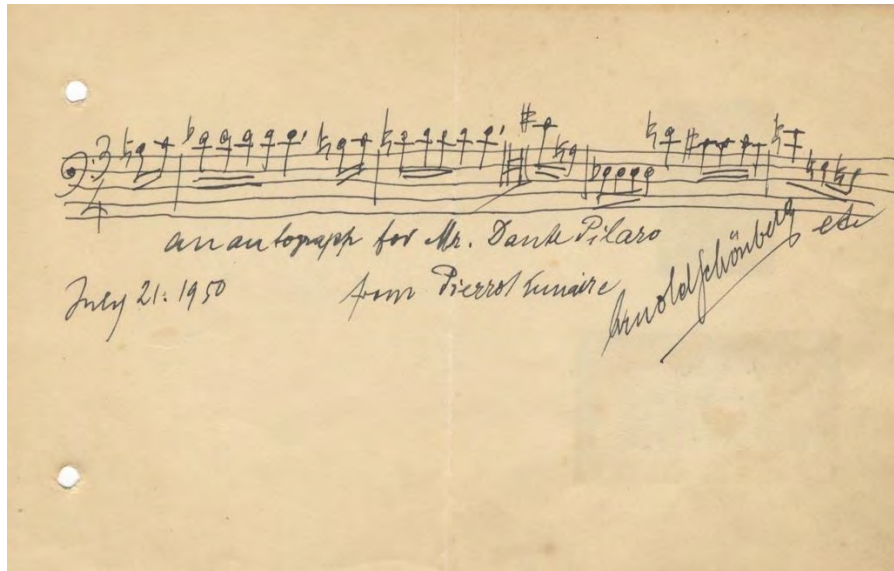 an autograpp for Mr. Dante Pilaro
etc
July 21. 1950
from Pierrot Lunaire
Arnold Schönberg